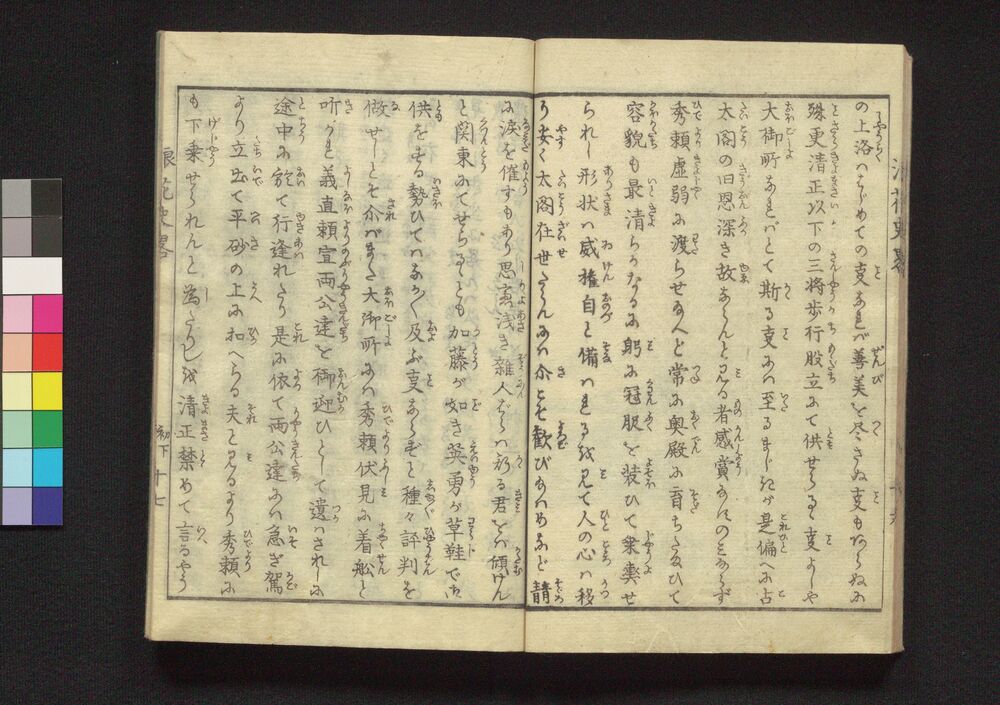 の上洛ハはじめての事なれバ善美を尽さぬ事もあらぬに
殊更清正以下の三将歩行股立にて供せらるゝ事よしや
大御所なれバとて斯る事にハ至るまじきが是偏へに古
太閤の旧恩深き故ならんと見る者感賞なすのミならず
秀頼虚弱に渡らせ給へバと常に奥殿に育ちたるひて
容貌も最清らかなるに躬に冠服を装ひて乗輿せ
られし形状ハ威権自と備ハれるを見て人の心ハ移
り安く太閤在世さらんにハ今とそ歓びあハめなど
に涙を催すもあり思慮浅き雑人ばらハ斯る君をバ傾けん
と関東にてせらるゝとも加藤が如き英勇が草鞋でに
供をする勢ひてハなか〳〵及ぶ事ならずと種々評判を
做せしとぞ介バまた大御所にハ秀頼伏見に着舩と
听かれ義直頼宣両公達を御迎ひとして遣ハされしに
途中に於て行逢れたり是に依て両公達にハ急ぎ駕
より立出て平砂の上に扣へらる夫と見るより秀頼に
も下乗せられんと為たりしを清正禁めて言るやう
浪花史略
初下
十七